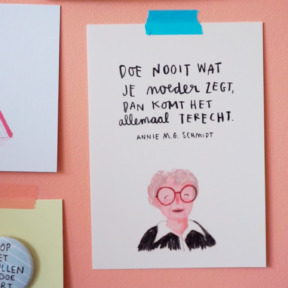 DOE NOOIT WAT
JE moeder ZEGT,
DAN KOMT HET
allemaal TERECHT.
ANNIE M.G. SCHMIDT
OP
ET
LLEN
DOE
RT